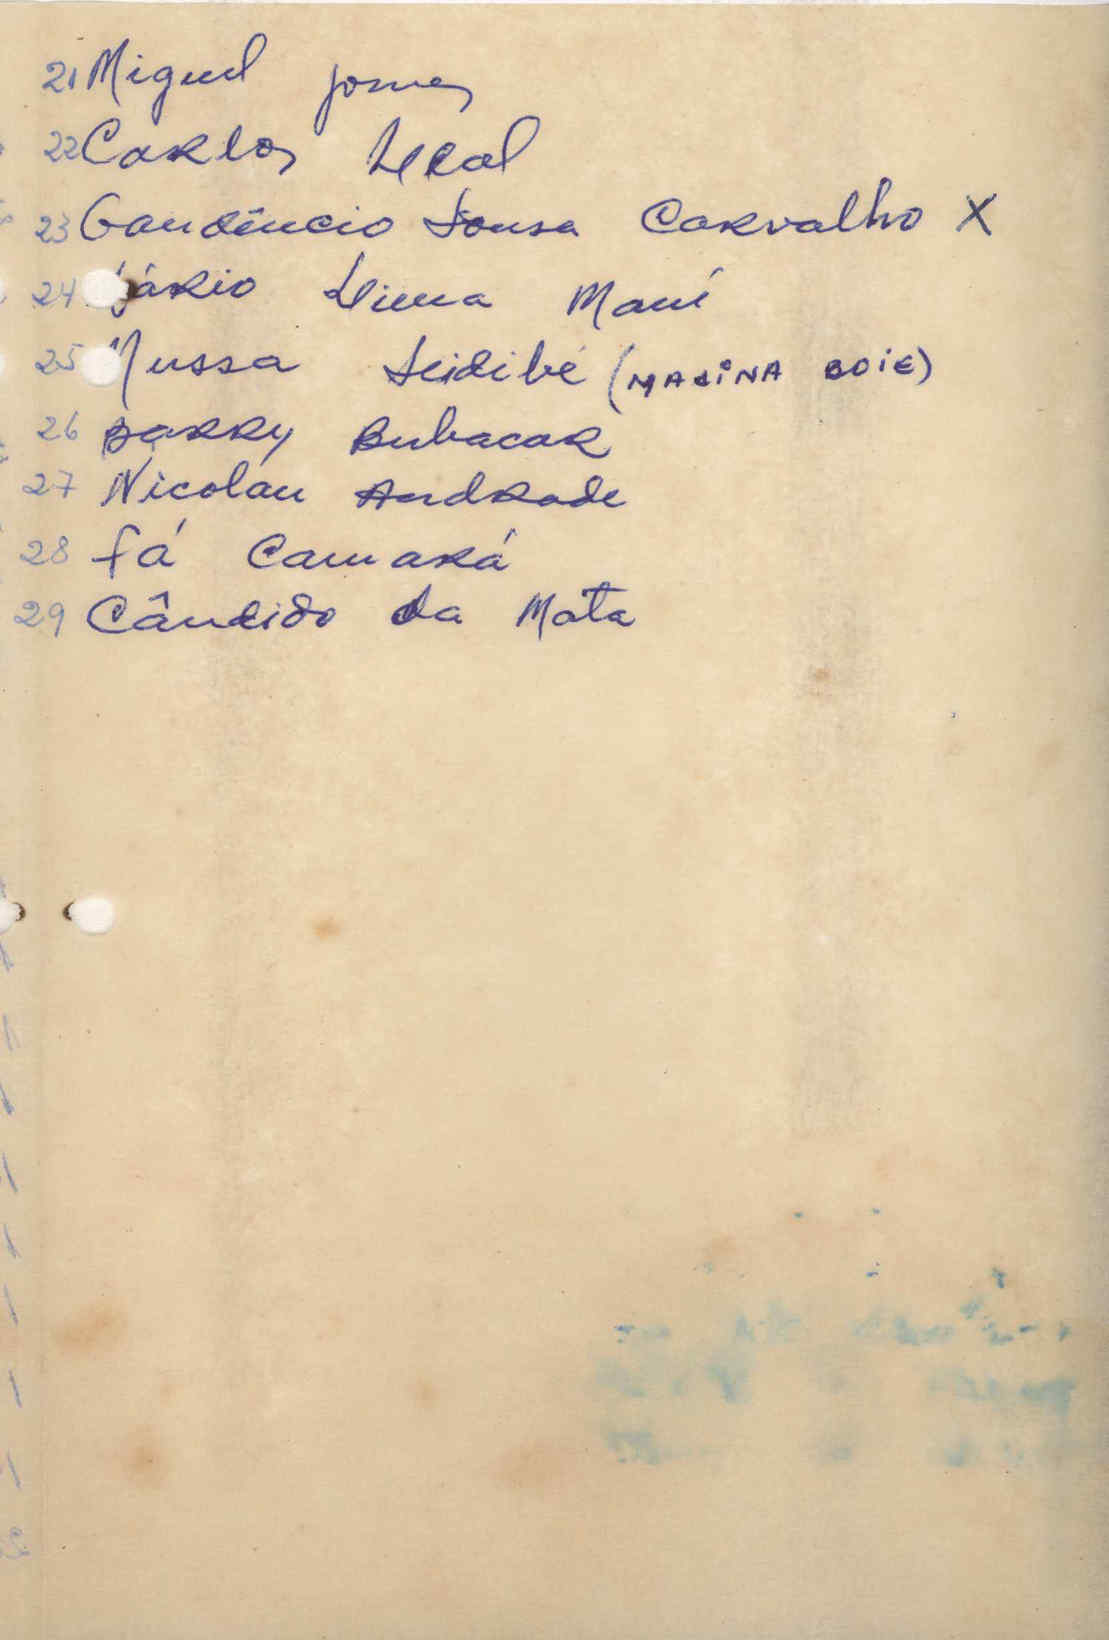 21 Miguel Gomes
22 Carlos Leal
23 Gaudêncio Sousa Carvalho X
24 Lima Mané
25 Mussa Seidibé (MADINA BOIE)
26 Barry Bubacar
27 Nicolau Andrade
28 Fá Camará
29 Cândido da Mata